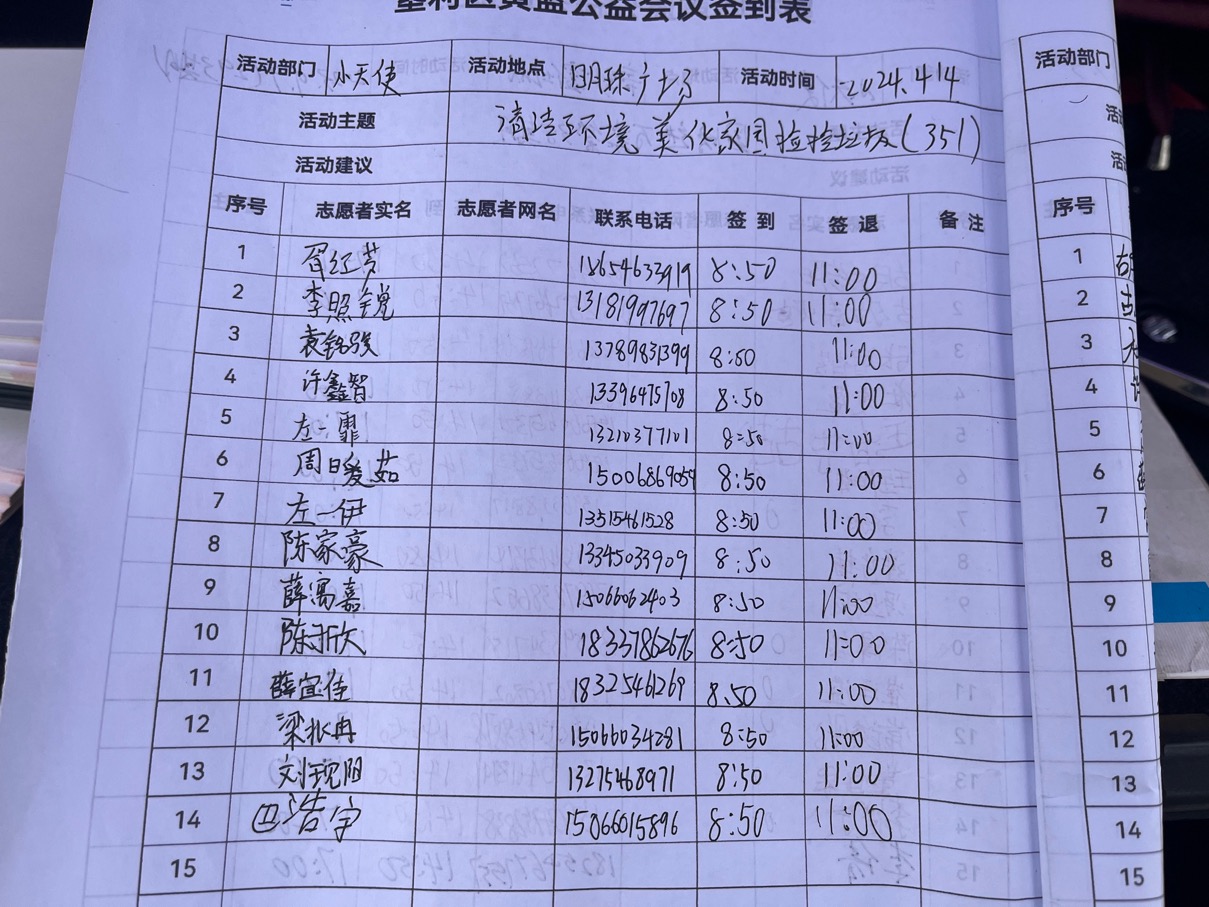 垦利区黄蓝公益会议签到表
活动部门 小天使 活动地点 明珠广场 活动时间 2024.4.14
活动主题 清洁环境 美化家园 捡捡垃圾(351)
活动建议
序号 志愿者实名 志愿者网名 联系电话 签到 签退 备注
1 胥红芳 18654633919 8:50 11:00
2 李照锐 13181997697 8:50 11:00
3 袁铭骏 13789831399 8:50 11:00
4 许鑫智 13396475708 8:50 11:00
5 左一霏 13210377101 8:50 11:00
6 周暖茹 15006869059 8:50 11:00
7 左一伊 13515461528 8:50 11:00
8 陈家豪 13345033909 8:50 11:00
9 薛富嘉 15066062403 8:50 11:00
10 陈昕欣 18337862676 8:50 11:00
11 薛宜佳 18325461269 8:50 11:00
12 梁振冉 15066034281 8:50 11:00
13 刘现阳 13275468971 8:50 11:00
14 浩宇 15866015896 8:50 11:00
15
活动部门
活
活
序号
1
2
3
4
5
6
7
8
9
10
11
12
13
14
15